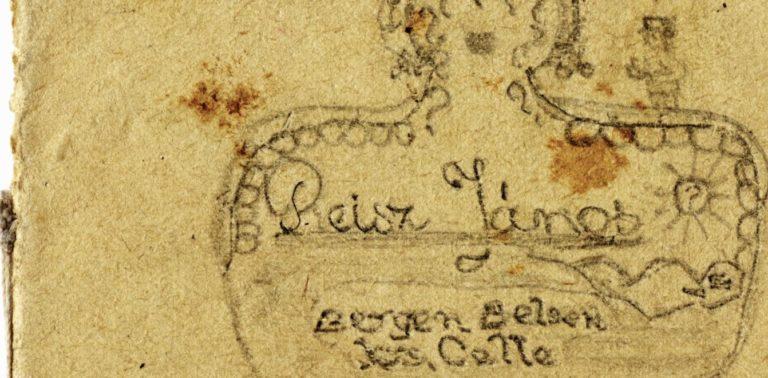 Reisz János
Bergen Belsen
Celle